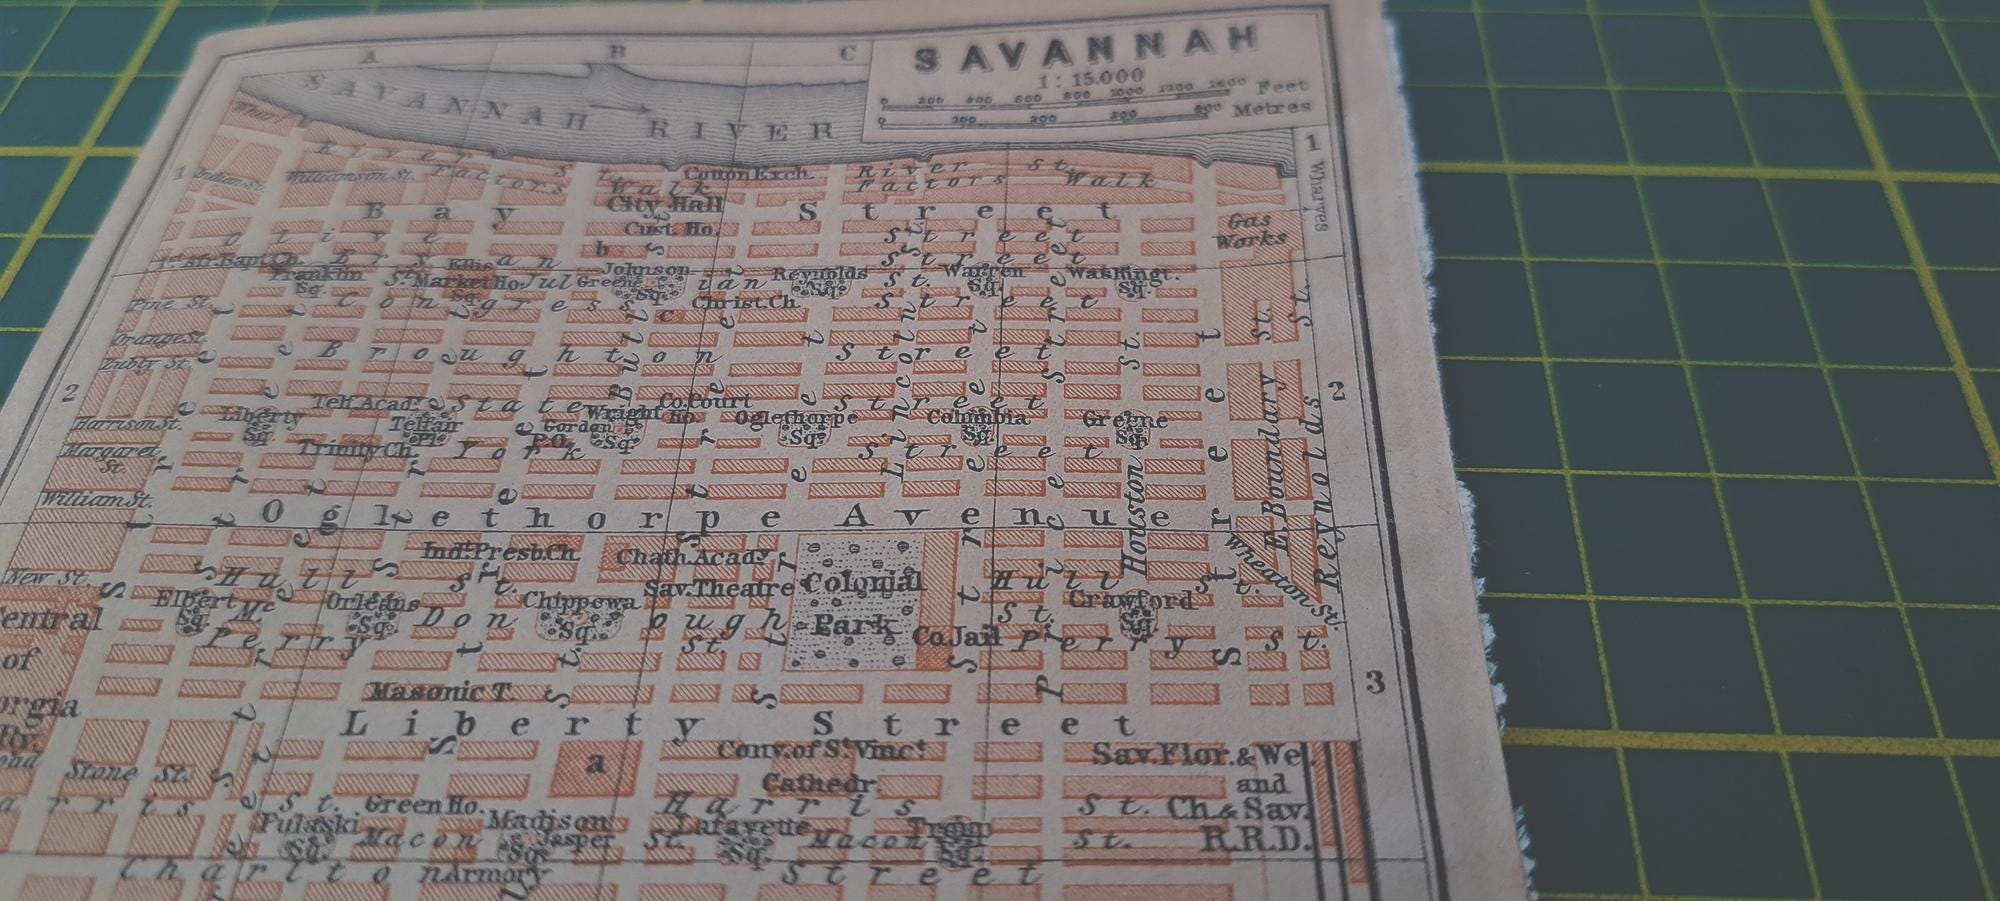 A B C
SAVANNAH
1:15.000
0 200 400 600 800 1000 1200 1600 Feet
0 100 200 400 Metres
SAVANNAH RIVER
1
Wharves
River St.
River St.
Indian St.
Williamson St.
Factors Walk
Cotton Exch.
Factors Walk
1
Bay Street
City Hall
Cust. Ho.
b
Gas Works
Street
Bryan Street
Franklin Sq.
Ellis Sq.
St.
Market Ho.
Julian St.
Johnson Sq.
Greene
Reynolds Sq.
Warren Sq.
Washingt. Sq.
Pine St.
Congress Street
Christ Ch.
c
Orange St.
Zubly St.
Broughton Street
Bull St.
Lincoln St.
2
2
Telf. Acad.
State Street
Co. Court Ho.
Harrison St.
Liberty Sq.
Telfair Pl.
Wright Sq.
Gordon
Oglethorpe Sq.
Columbia Sq.
Greene Sq.
Margaret St.
Trinity Ch.
York Street
P.O.
William St.
Houston St.
E. Boundary St.
Reynolds St.
Oglethorpe Avenue
Ind. Presb. Ch.
Chath. Acady.
Sav. Theatre
Colonial Park
Wheaton St.
New St.
Hull St.
Hull St.
Elbert Sq.
Orleans Sq.
Chippewa Sq.
Crawford Sq.
Mc Donough St.
St.
Perry St.
Co. Jail
Perry St.
of
3
Masonic T.
Liberty Street
a
Conv. of St. Vinct.
Cathedr.
Sav. Flor. & We
and
Ch. & Sav.
R.R.D.
Stone St.
St.
Green Ho.
Harris St.
Pulaski Sq.
Macon St.
Madison Sq.
Jasper
Lafayette Sq.
Macon St.
Troup Sq.
Charlton Street
Armory